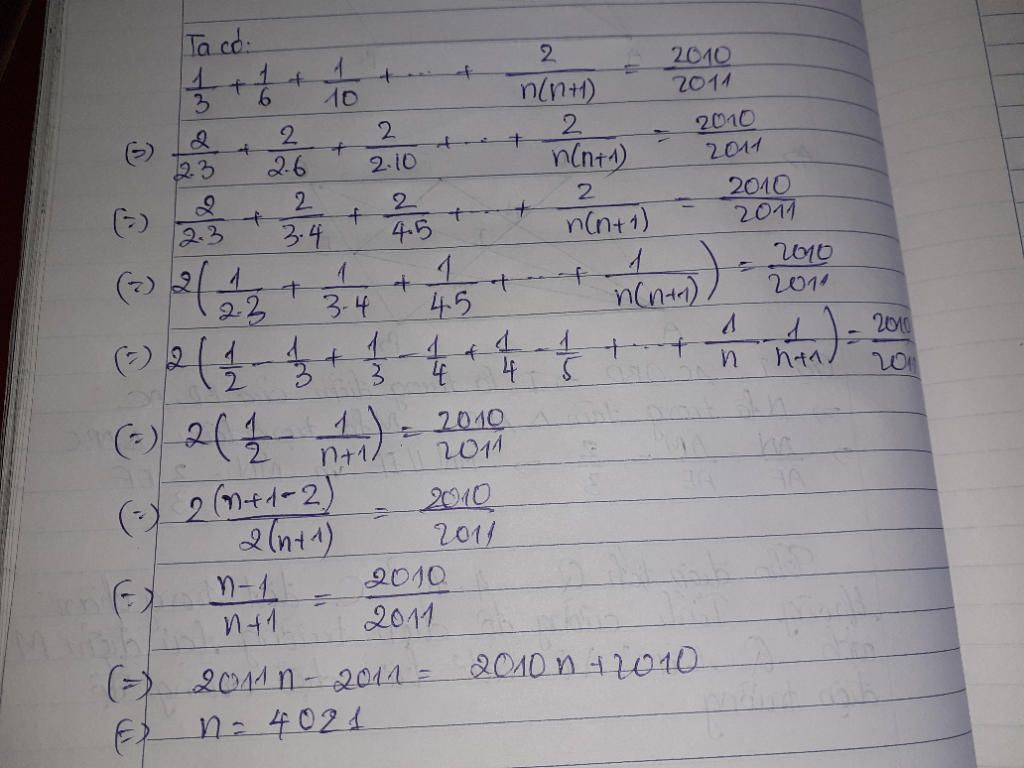 Ta có:
1/3 + 1/6 + 1/10 + ... + 2/n(n+1) = 2010/2011
(=) 2/2.3 + 2/2.6 + 2/2.10 + ... + 2/n(n+1) = 2010/2011
(=) 2/2.3 + 2/3.4 + 2/4.5 + ... + 2/n(n+1) = 2010/2011
(=) 2(1/2.3 + 1/3.4 + 1/4.5 + ... + 1/n(n+1)) = 2010/2011
(=) 2(1/2 - 1/3 + 1/3 - 1/4 + 1/4 - 1/5 + ... + 1/n - 1/n+1) = 2010/2011
(=) 2(1/2 - 1/n+1) = 2010/2011
(=) 2(n+1-2)/2(n+1) = 2010/2011
(=) n-1/n+1 = 2010/2011
(=) 2011n - 2011 = 2010n + 2010
(=) n = 4021